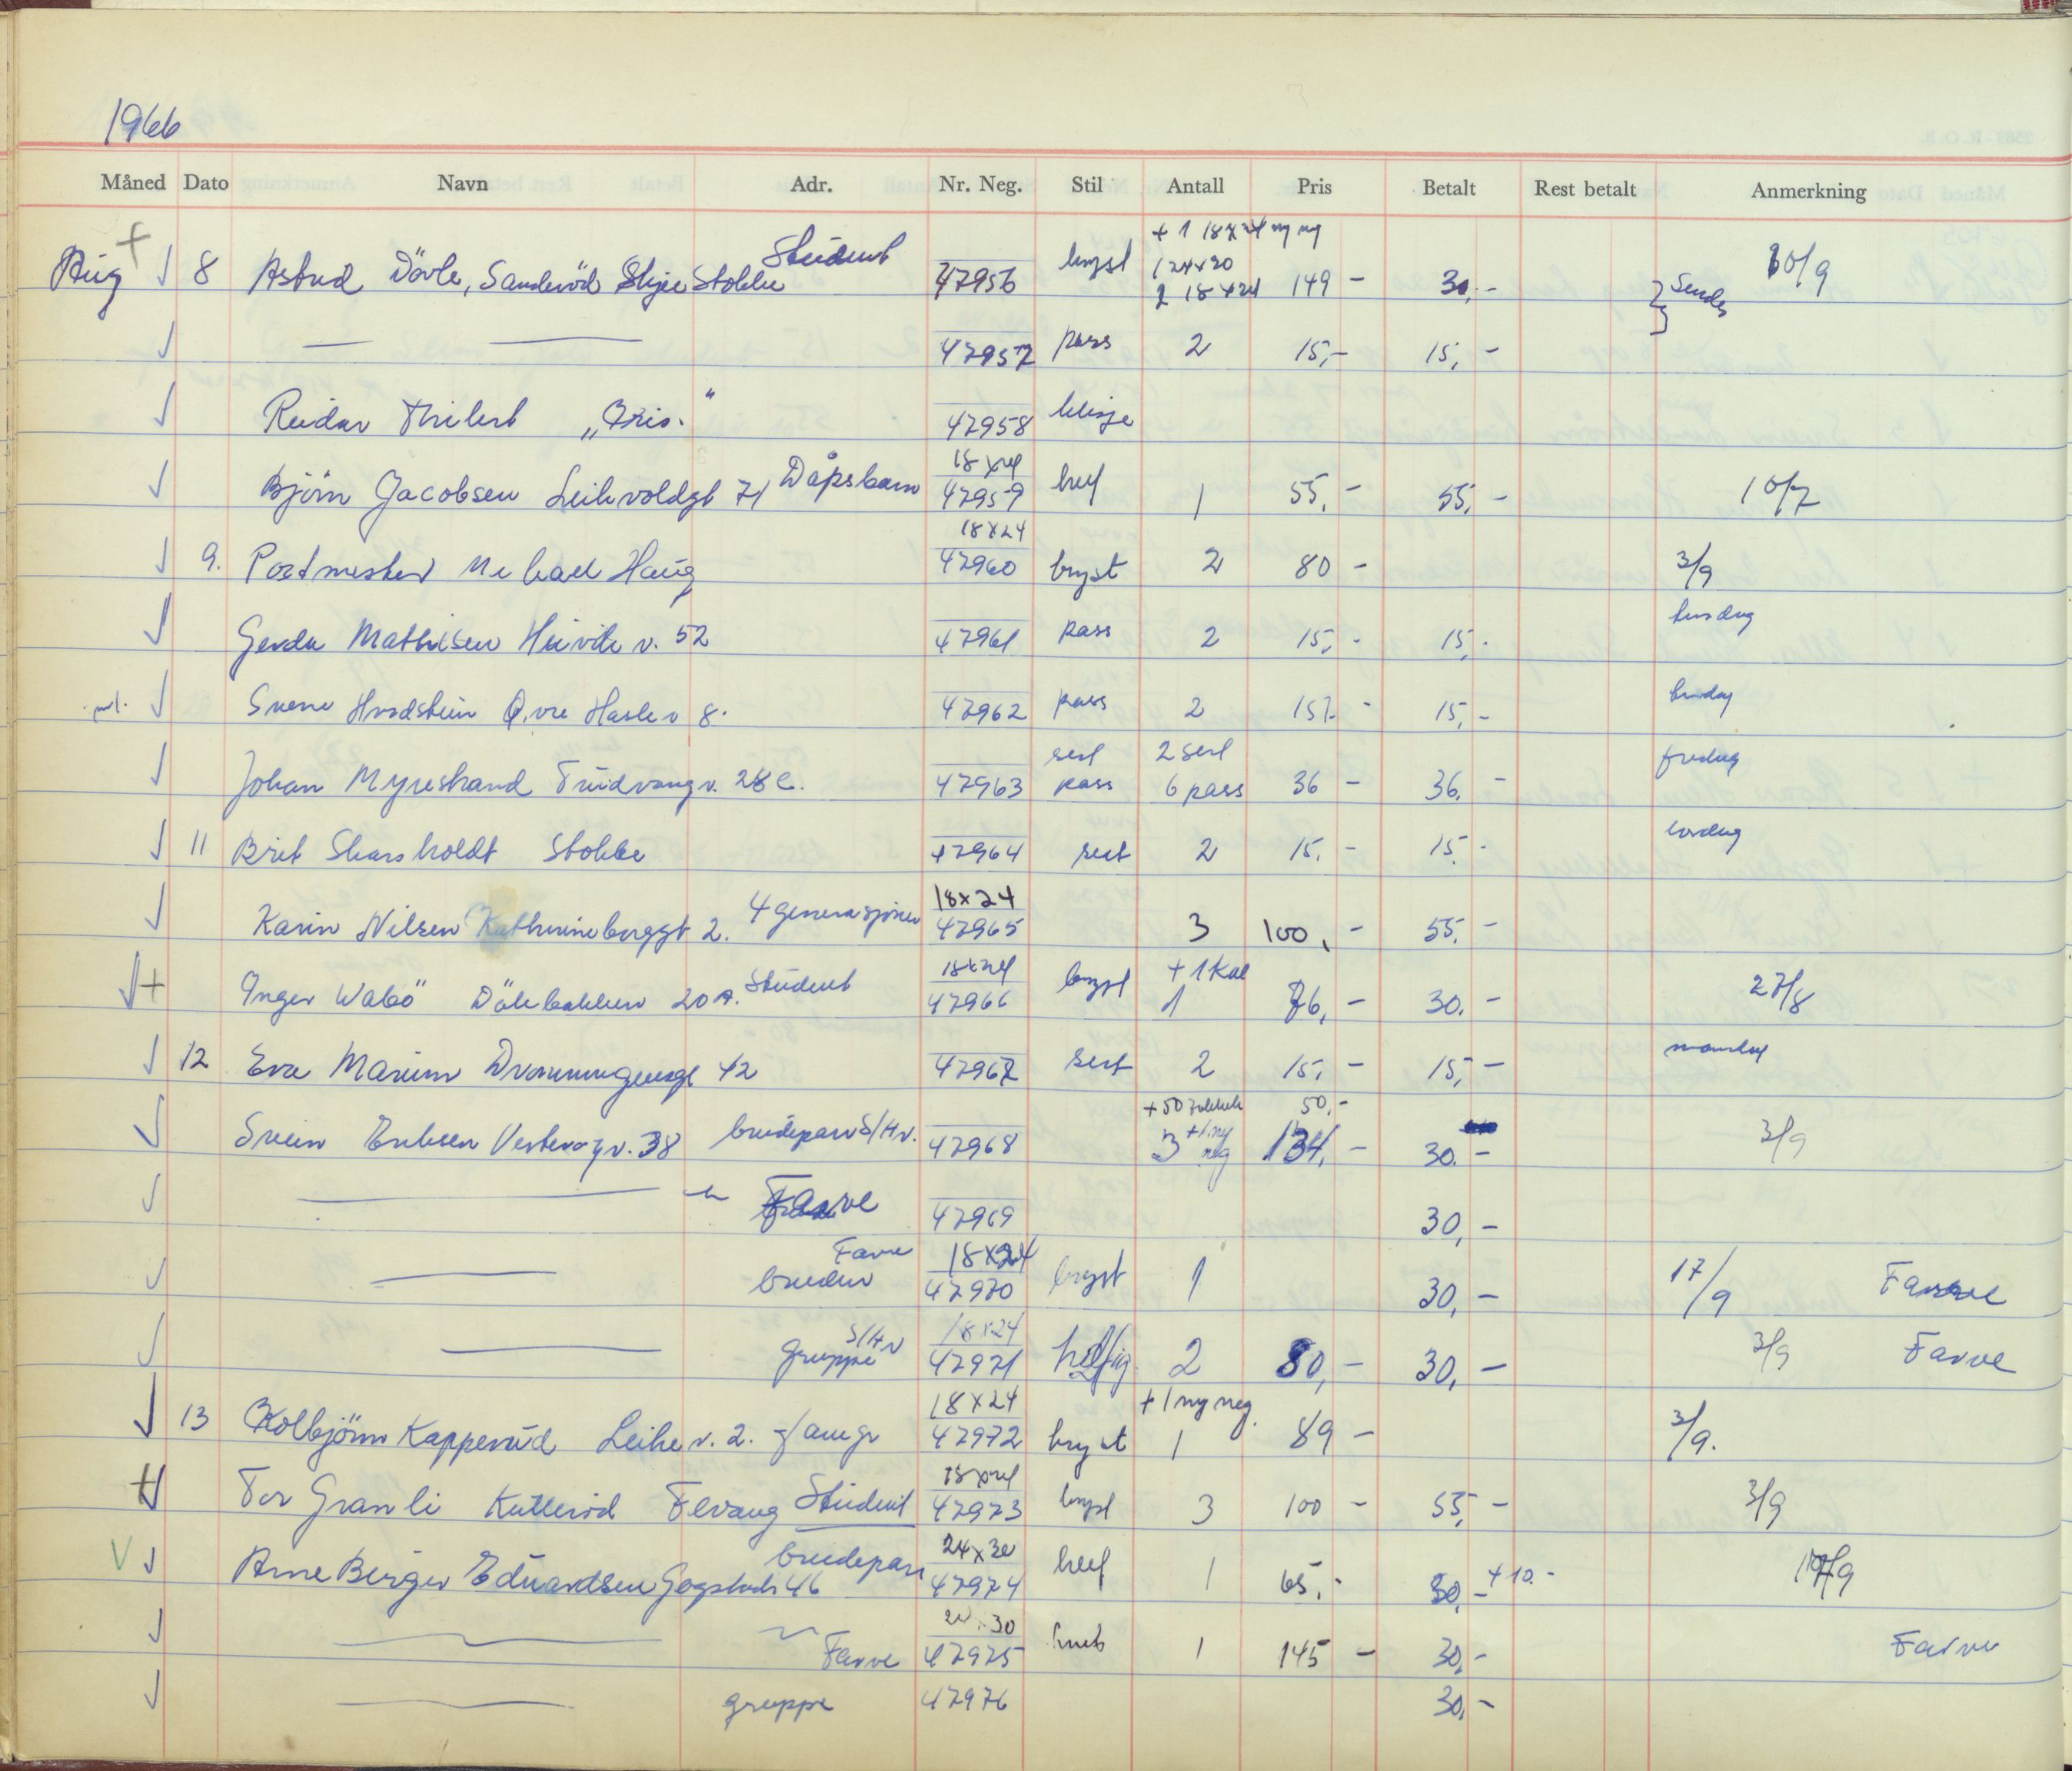 1966
Måned Dato Navn Adr. Nr. Neg. Stil Antall Pris Betalt Rest betalt Anmerkning
+ 1 18x24 ny neg
Aug + √ 8 Astrid Dövle, Sanderöd Skjee Stokke Student 47956 bryst 1 24x30 2 18x24 149 - 30,- } Sendes 10/9
√ — — 47957 pass 2 15,- 15,-
√ Reidar Thilert „Iris." 47958 klisje
18x24
√ Björn Jacobsen Leikvoldgt 71 Dåpsbarn 47959 hel 1 55,- 55,- 10/7
18x24
√ 9. Postmester Michael Haug 47960 bryst 2 80 - 3/9
√ Gerda Mathisen v. 52 47961 pass 2 15,- 15,- tirsdag
√ Svenn Hvodstein Ö.vre Hasle v 8. 47962 pass 2 15,- 15,-
sert 2 sert
√ Johan Myrestrand Tuidvang v. 28 C. 47963 pass 6 pass 36 - 36,- fredag
√ 11 Brit Skarsholdt Stokke 47964 sert 2 15,- 15,- lördag
18x24
√ Karin Nilsen Kathrineborggt 2. 4 generasjoner 47965 3 100,- 55,-
18x24 + 1 Kab
√ + Inger Wabö Dölebakken 20 A. Student 47966 bryst 1 76,- 30,- 27/8
√ 12 Eva Marium Dronningensgt 42 47967 sert 2 15,- 15,- mandag
+ 50 50,-
√ Svein Eriksen Vesterøy v. 38 brudepar S/Hv. 47968 3 + 1 ny neg 134,- 30,- 3/9
√ — Farve 47969 30,-
Farve 18x24
√ — bruden 47970 bryst 1 30,- 17/9 Farve
S/Hv 18x24
√ — gruppe 47971 helfig 2 80,- 30,- 3/9 Farve
18x24 + 1 ny neg.
√ 13 Kolbjörn Kapperud Leike v. 2. famgr 47972 bryst 1 89 - 3/9.
18x24
+ √ Tor Granli Kulleröd Fevang Student 47973 bryst 3 100 - 55,- 3/9
24x30
V √ Arne Birger Eduardsen Gogstadv 46 brudepar 47974 hel 1 65,- 30,- + 10.- 17/9
24x30
√ — Farve 47975 1 145 - 30,- Farve
√ — gruppe 47976 30,-